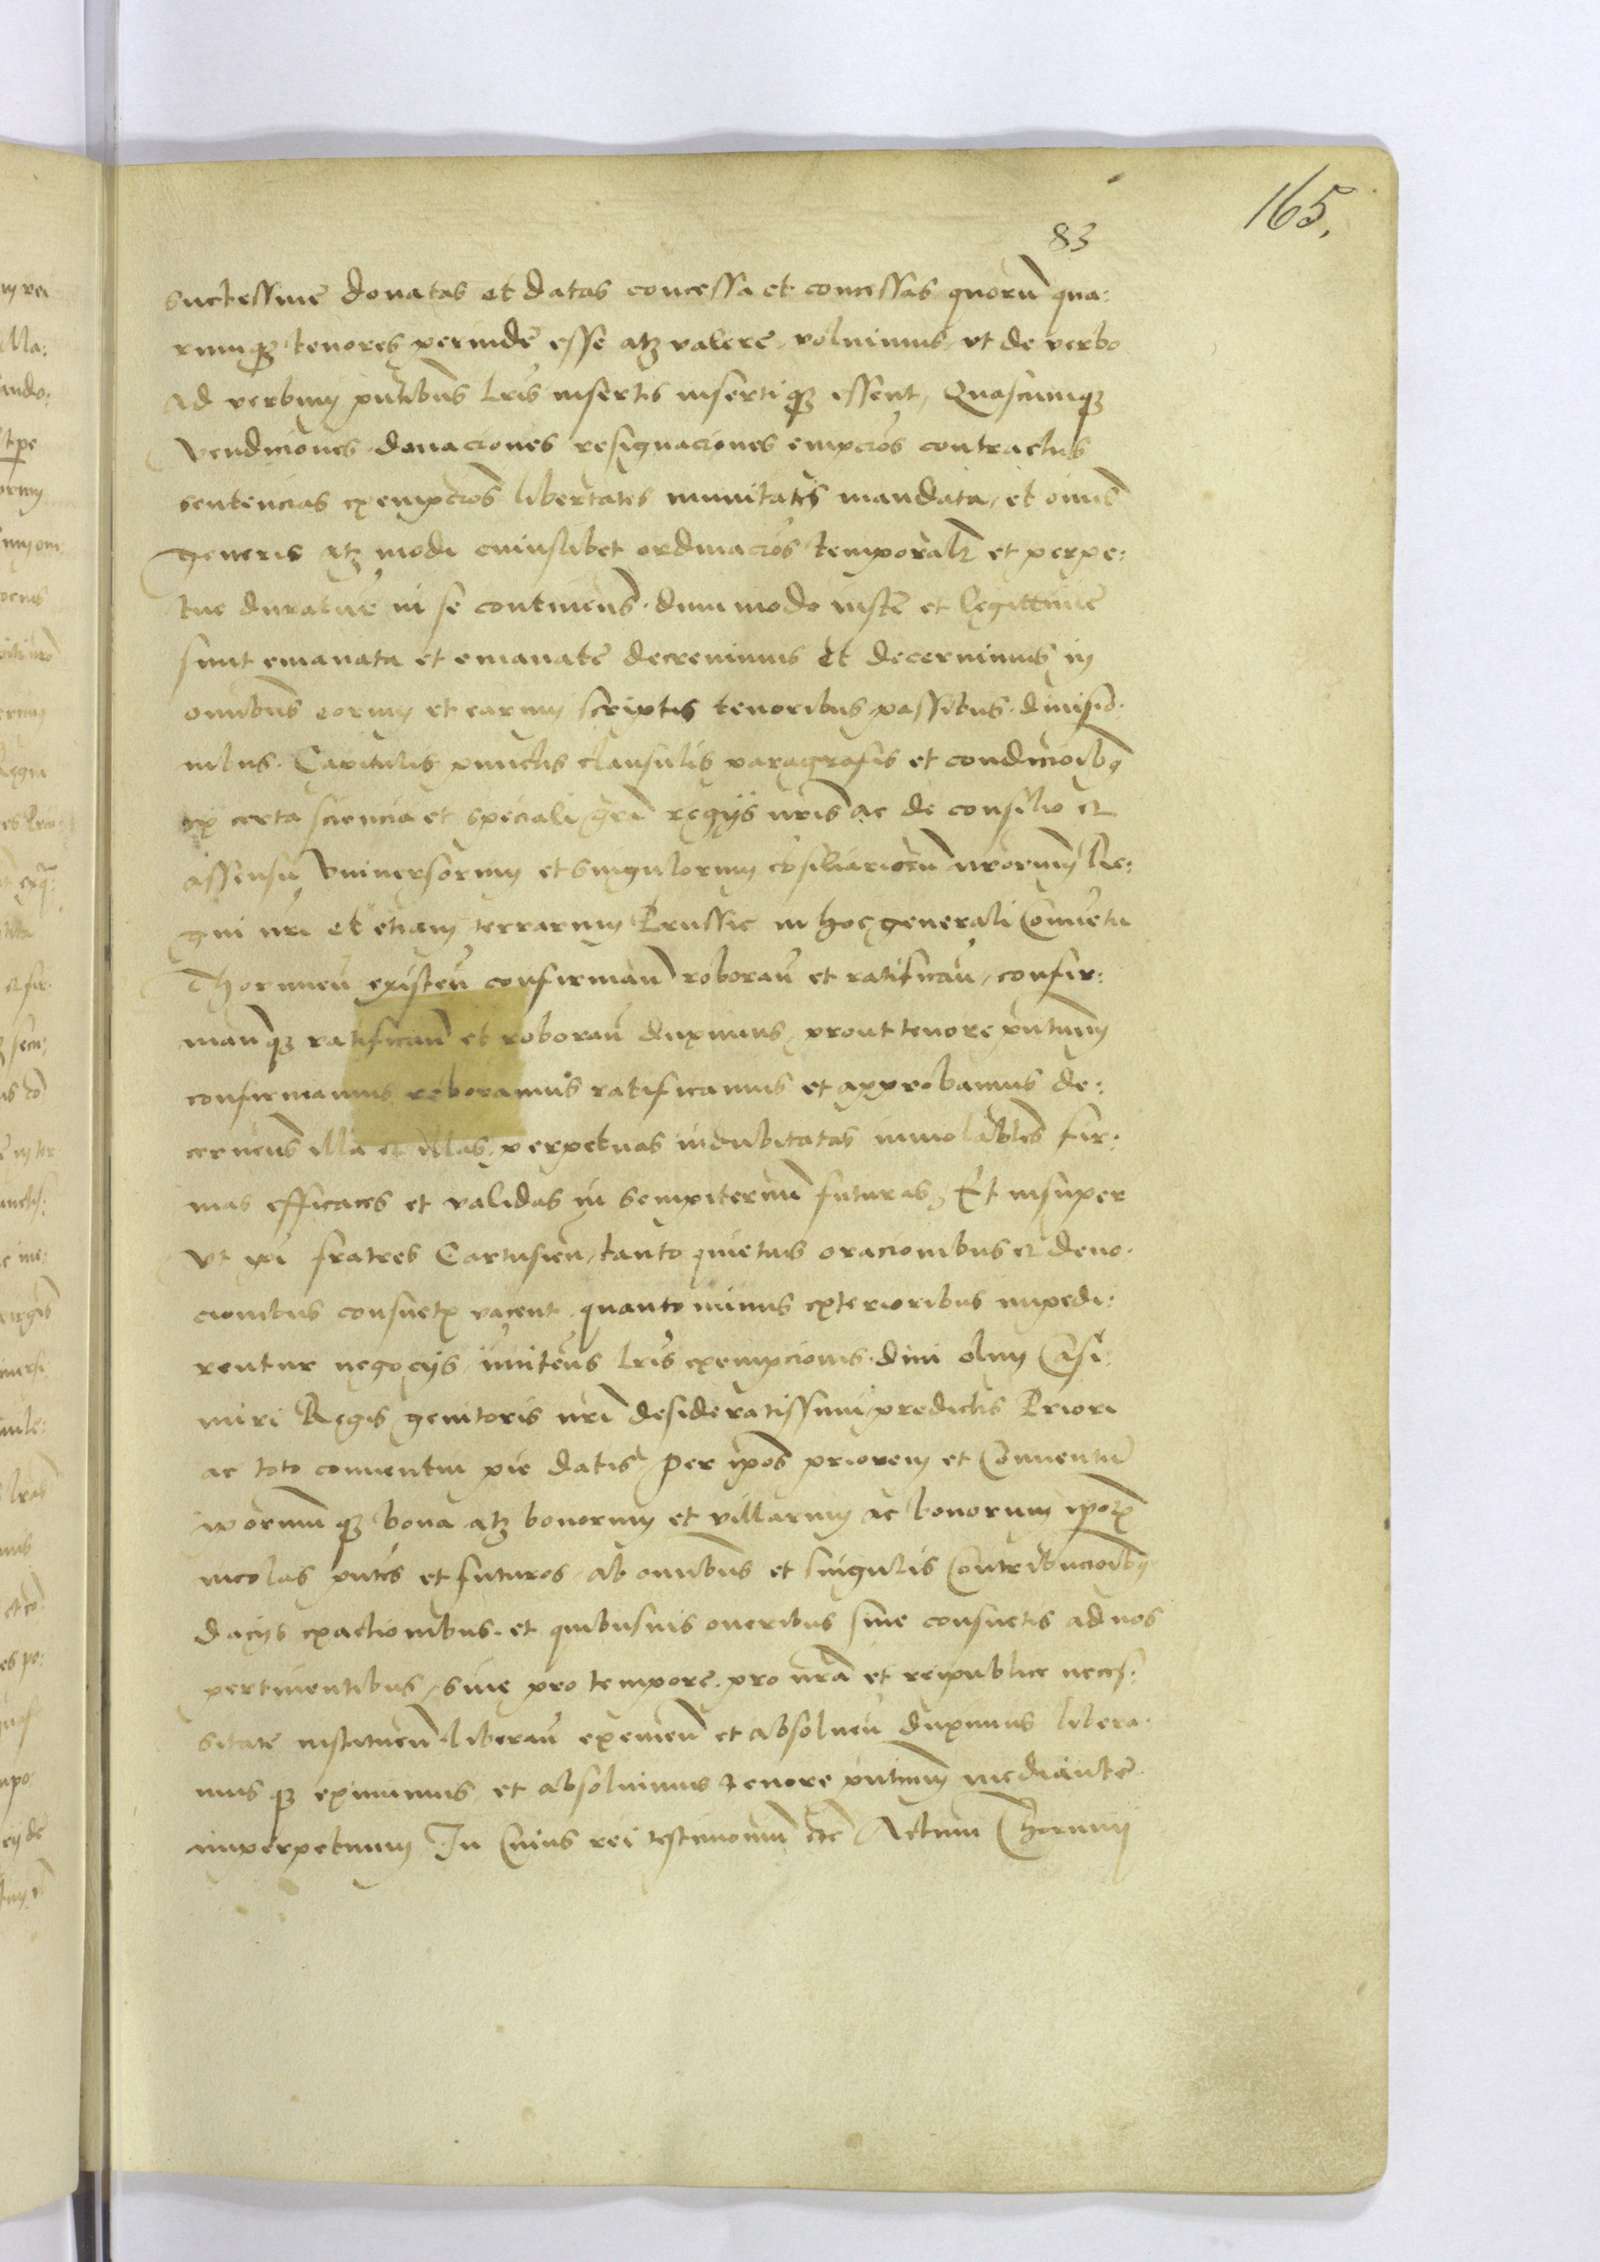 165.
83
successiue donatas et datas concessa et concessas quorũ qua:
rumqꝫ tenores perinde esse atqꝫ valere voluimus, vt de verbo
ad verbum pñtibus lris insertis insertiqꝫ essent, Quascumqꝫ
vendiciones donaciones resignaciones empcioẽs contractus
sentencias exempcioẽs libertates munitates mandata, et oĩmẽ
generis atqꝫ modi cuiuslibet ordinacioẽs temporalꝫ et perpe:
tue durature in se continens̃. dummodo iuste et legittime
sunt emanata et emanate decreuimus et decernimus in
omnibus eorum et earum scriptis tenoribus passibus. diuisio.
nibus. Capitulis punctis clausulis paragrafis et condicioĩbꝫ
ex certa sciencia et speciali grã regijs nris ac de consilio et
assensu Vniuersorum et singulorum cõsiliariorũ nrorum Re:
gni nri et etiam terrarum Prussie in hoc generali Conuẽtu
Thorunẽn existeñ confirmanð roboranð et ratificanð, confir:
manðqꝫ ratificanð et roboranð duximus, prout tenore pñtium
confirmamus roboramus ratificamus et approbamus de:
cernens̃ illa et illas, perpetuas indubitatas inuiolabiles fir:
mas efficaces et validas in sempiternum futuras, Et insuper
vt ipĩ fratres Cartusieñ, tanto quietius oracionibus et deuo.
cionibus consuetꝫ vacent quanto minus exterioribus impedi:
rentur negocijs, inniteñs lris exempcionis. diui olim Casi:
miri Regis genitoris nri desideratissimi, predictis Priori
ac toto conuentui pie datis, per ipos priorem et Conuentũ
ipsorumqꝫ bona atqꝫ bonorum et villarum ac bonorum ipoꝝ
incolas pñtes et futuros, ab omnibus et singulis Contribucioĩbꝫ
dacijs exactionibus. et quibusuis oneribus siue consuetis ad nos
pertinentibus, siue pro tempore. pro nra et reipublice neces:
sitate instituenð. liberanð eximenð et absoluenð duximus libera.
musqꝫ eximimus et absoluimus tenore pñtium mediante
imperpetuum In Cuius rei testimonium etc Actum Thorunij